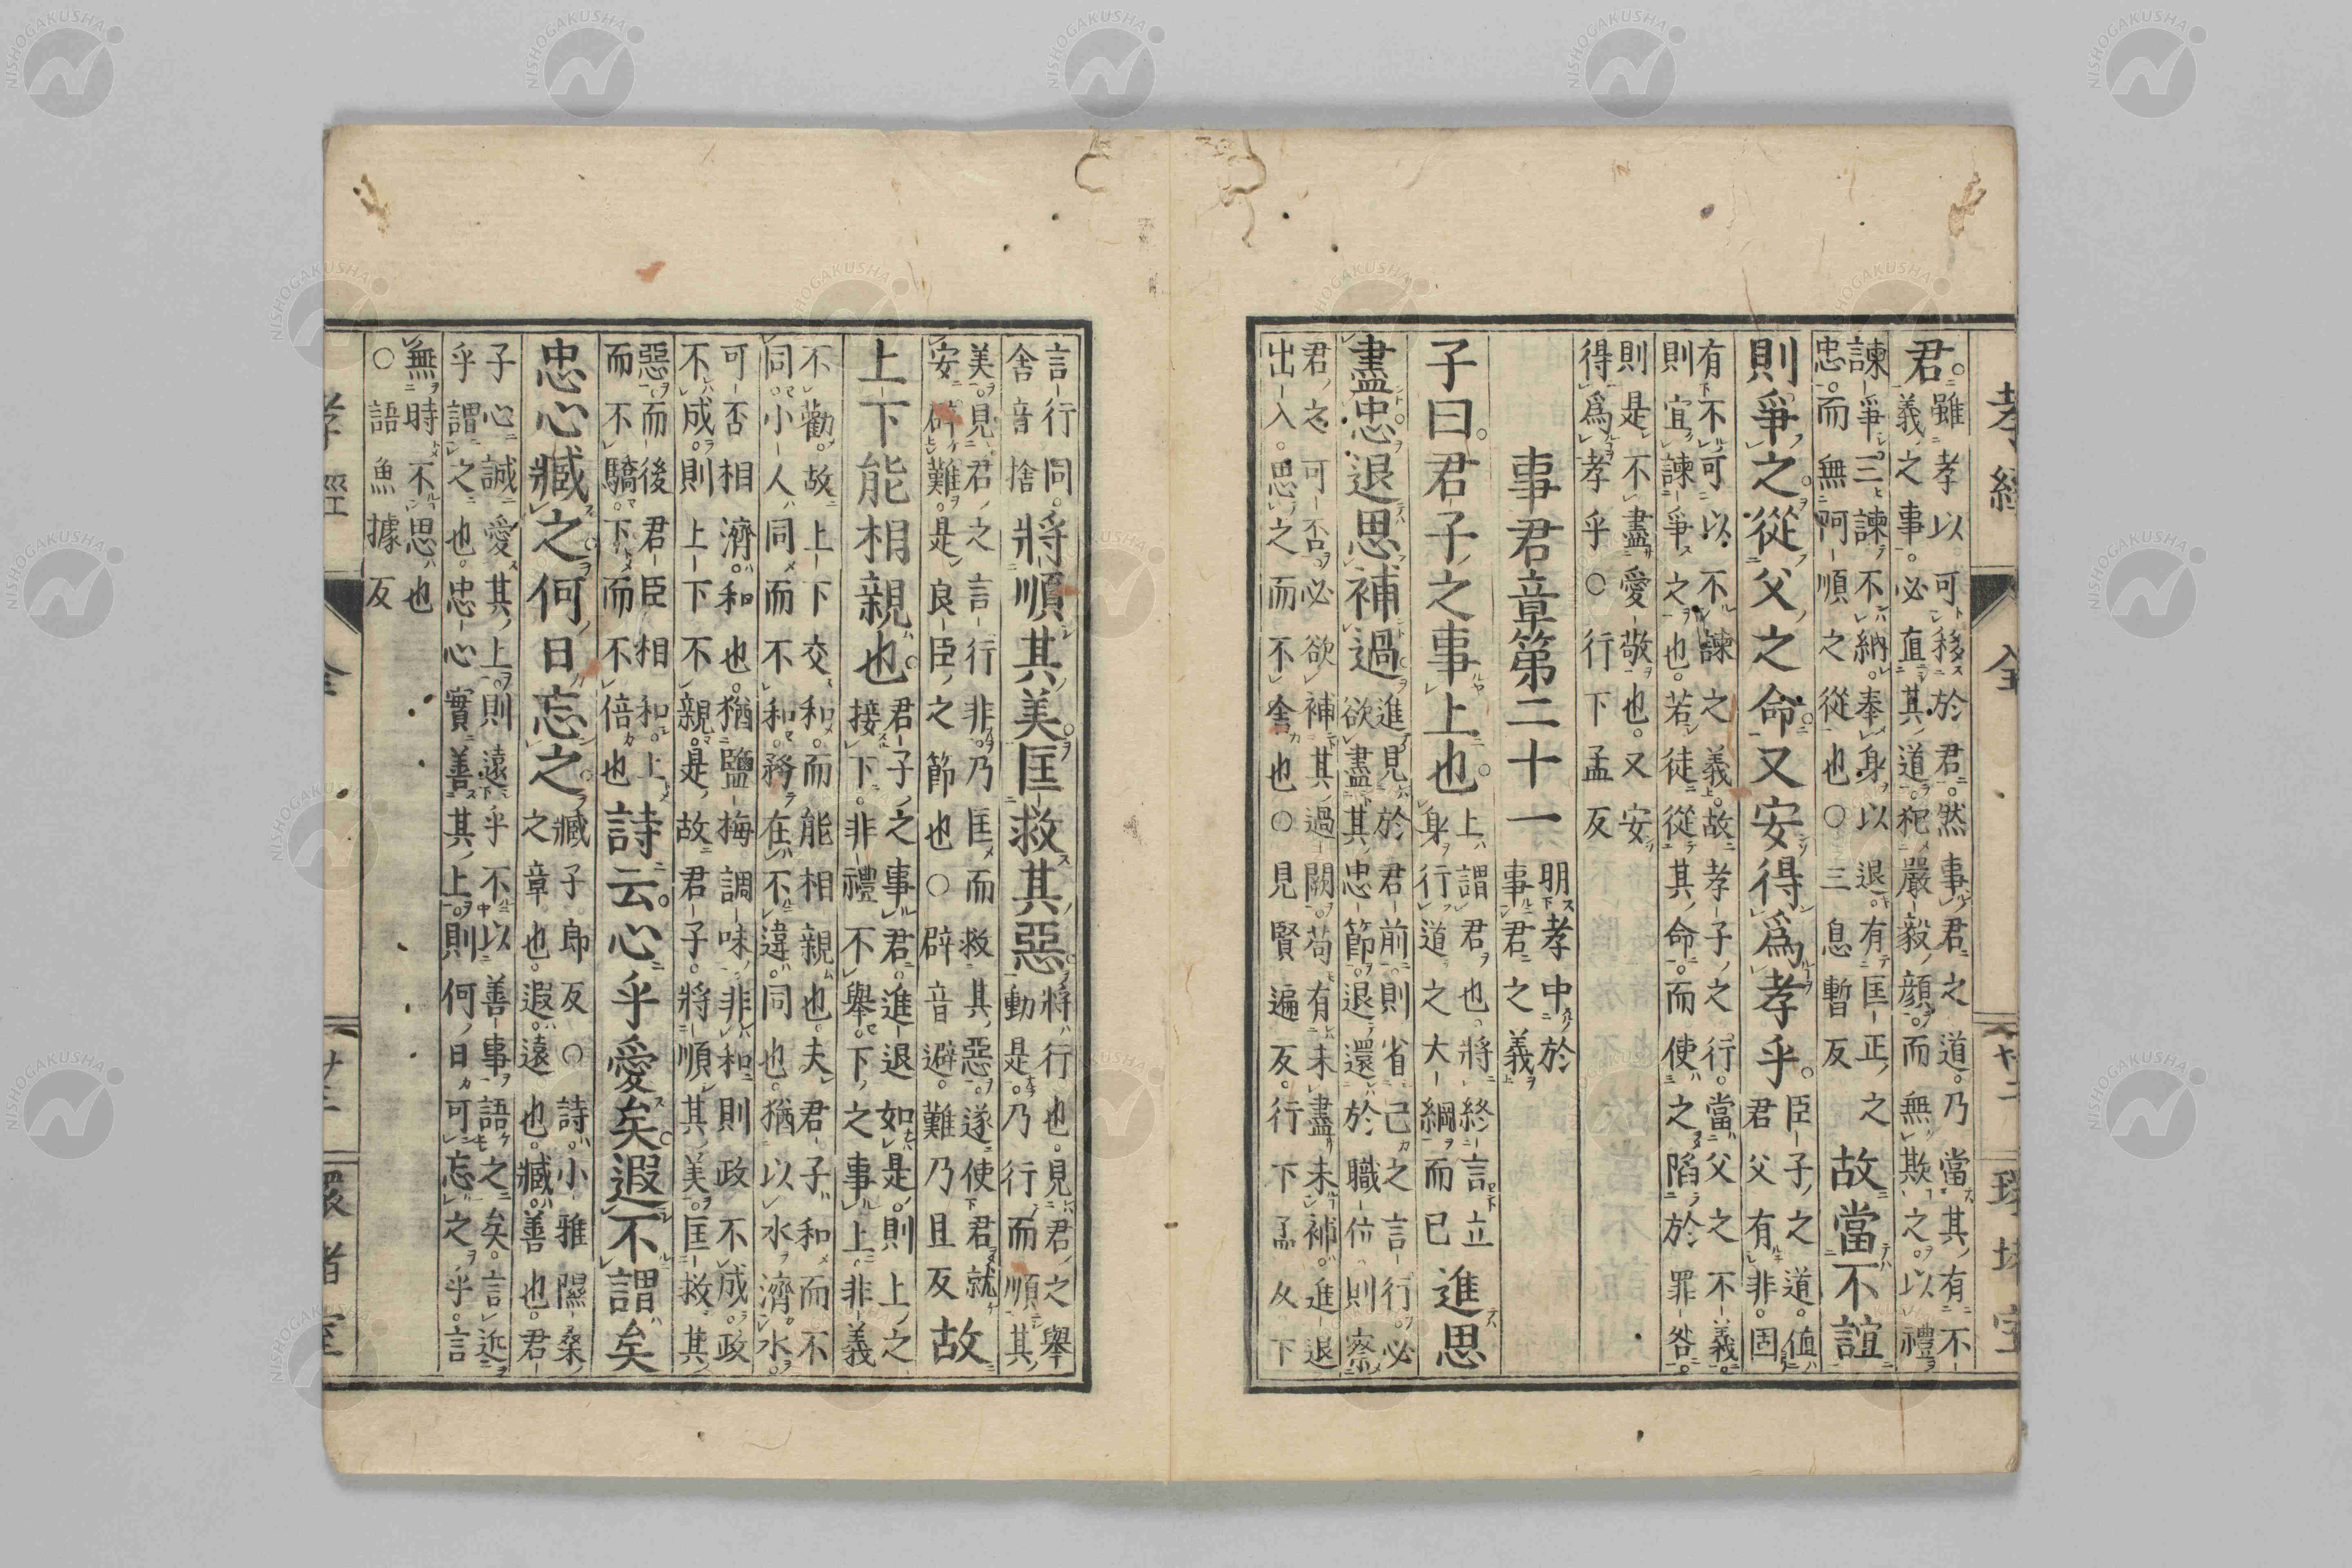 孝經 全 廿二
君雖孝以可移於君然事君之道乃當其有不
義之事必直其道犯嚴毅顏而無欺之以禮
諫爭三諫不納奉身以退有匡正之
忠而無阿順之從也○三息暫反
故當不誼
則爭之從父之命又安得爲孝乎
臣子之道値
君父有非固
有不可以不諫之義故孝子之行當父之不義
則宜諫爭之也若徒從其命而使之陷於罪咎
則是不盡愛敬也又安
得爲孝乎○行下孟反
事君章第二十一
明孝中於
事君之義
子曰君子之事上也
上謂君也將終言立
身行道之大綱而已
進思
盡忠退思補過
進見於君前則省己之言行必
欲盡其忠節退還於職位則察
君之可否必欲補其過闕苟有未盡未補進退
出入思之而不舍也○見賢遍反行下孟反下
言行同
舍音捨
將順其美匡救其惡
將行也見君之舉
動是乃行而順其
美見君之言行非乃匡而救其惡遂使君就
安辟難是良臣之節也○辟音避難乃且反
故
上下能相親也
君子之事君進退如是則上之
接下非禮不舉下之事上非義
不勸故上下交和而能相親也夫君子和而不
同小人同而不和務在不違同也猶以水濟水
可否相濟和也猶鹽梅調味非和則政不成政
不成則上下不親是故君子將順其美匡救其
惡而後君臣相和上
而不驕下而不倍也
詩云心乎愛矣遐不謂矣
忠心臧之何日忘之
臧子郎反○詩小雅隰桑
之章也遐遠也臧善也君
子心誠愛其上則遠乎不以善事語之矣言近
乎謂之也忠心實善其上則何日可忘之乎言
無時不思也
○語魚據反
孝經 全 廿三
NISHOGAKUSHA